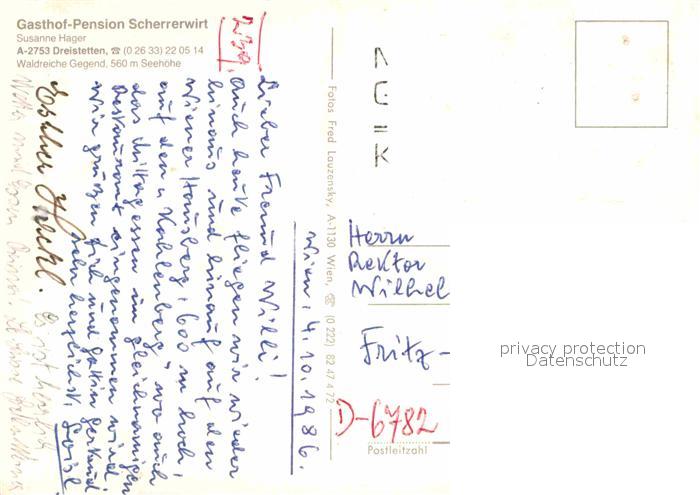 Gasthof-Pension Scherrerwirt
Susanne Hager
A-2753 Dreistetten, ☎ (0 26 33) 22 05 14
Waldreiche Gegend, 560 m Seehöhe
Wien, 4.10.1986.
Lieber Freund Willi!
Auch heute fliegen wir wieder
hinaus und hinauf auf den
Wiener Hausberg, 600 m hoch,
auf den "Kahlenberg", wo auch
das Mittagessen im gleichnamigen
Restaurant eingenommen wird.
Wir grüßen Dich und Gattin
sehr herzlichst,
Es ist herrlich
Fotos Fred Lauzensky, A-1130 Wien, ☎ (0 222) 82 47 4 72
Herrn
Rektor
Wilhel
Fritz-
D-6782
Postleitzahl
privacy protection
Datenschutz